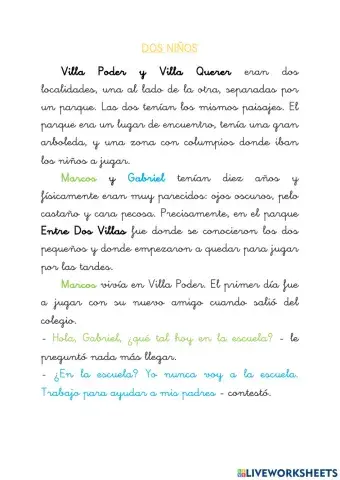 DOS NIÑOS
Villa Poder y Villa Querer eran dos
localidades, una al lado de la otra, separadas por
un parque. Las dos tenían los mismos paisajes. El
parque era un lugar de encuentro, tenía una gran
arboleda, y una zona con columpios donde iban
los niños a jugar.
Marcos y Gabriel tenían diez años y
físicamente eran muy parecidos: ojos oscuros, pelo
castaño y cara pecosa. Precisamente, en el parque
Entre Dos Villas fue donde se conocieron los dos
pequeños y donde empezaron a quedar para jugar
por las tardes.
Marcos vivía en Villa Poder. El primer día fue
a jugar con su nuevo amigo cuando salió del
colegio.
- Hola, Gabriel, ¿qué tal hoy en la escuela? - le
preguntó nada más llegar.
- ¿En la escuela? Yo nunca voy a la escuela.
Trabajo para ayudar a mis padres - contestó.
LIVEWORKSHEETS